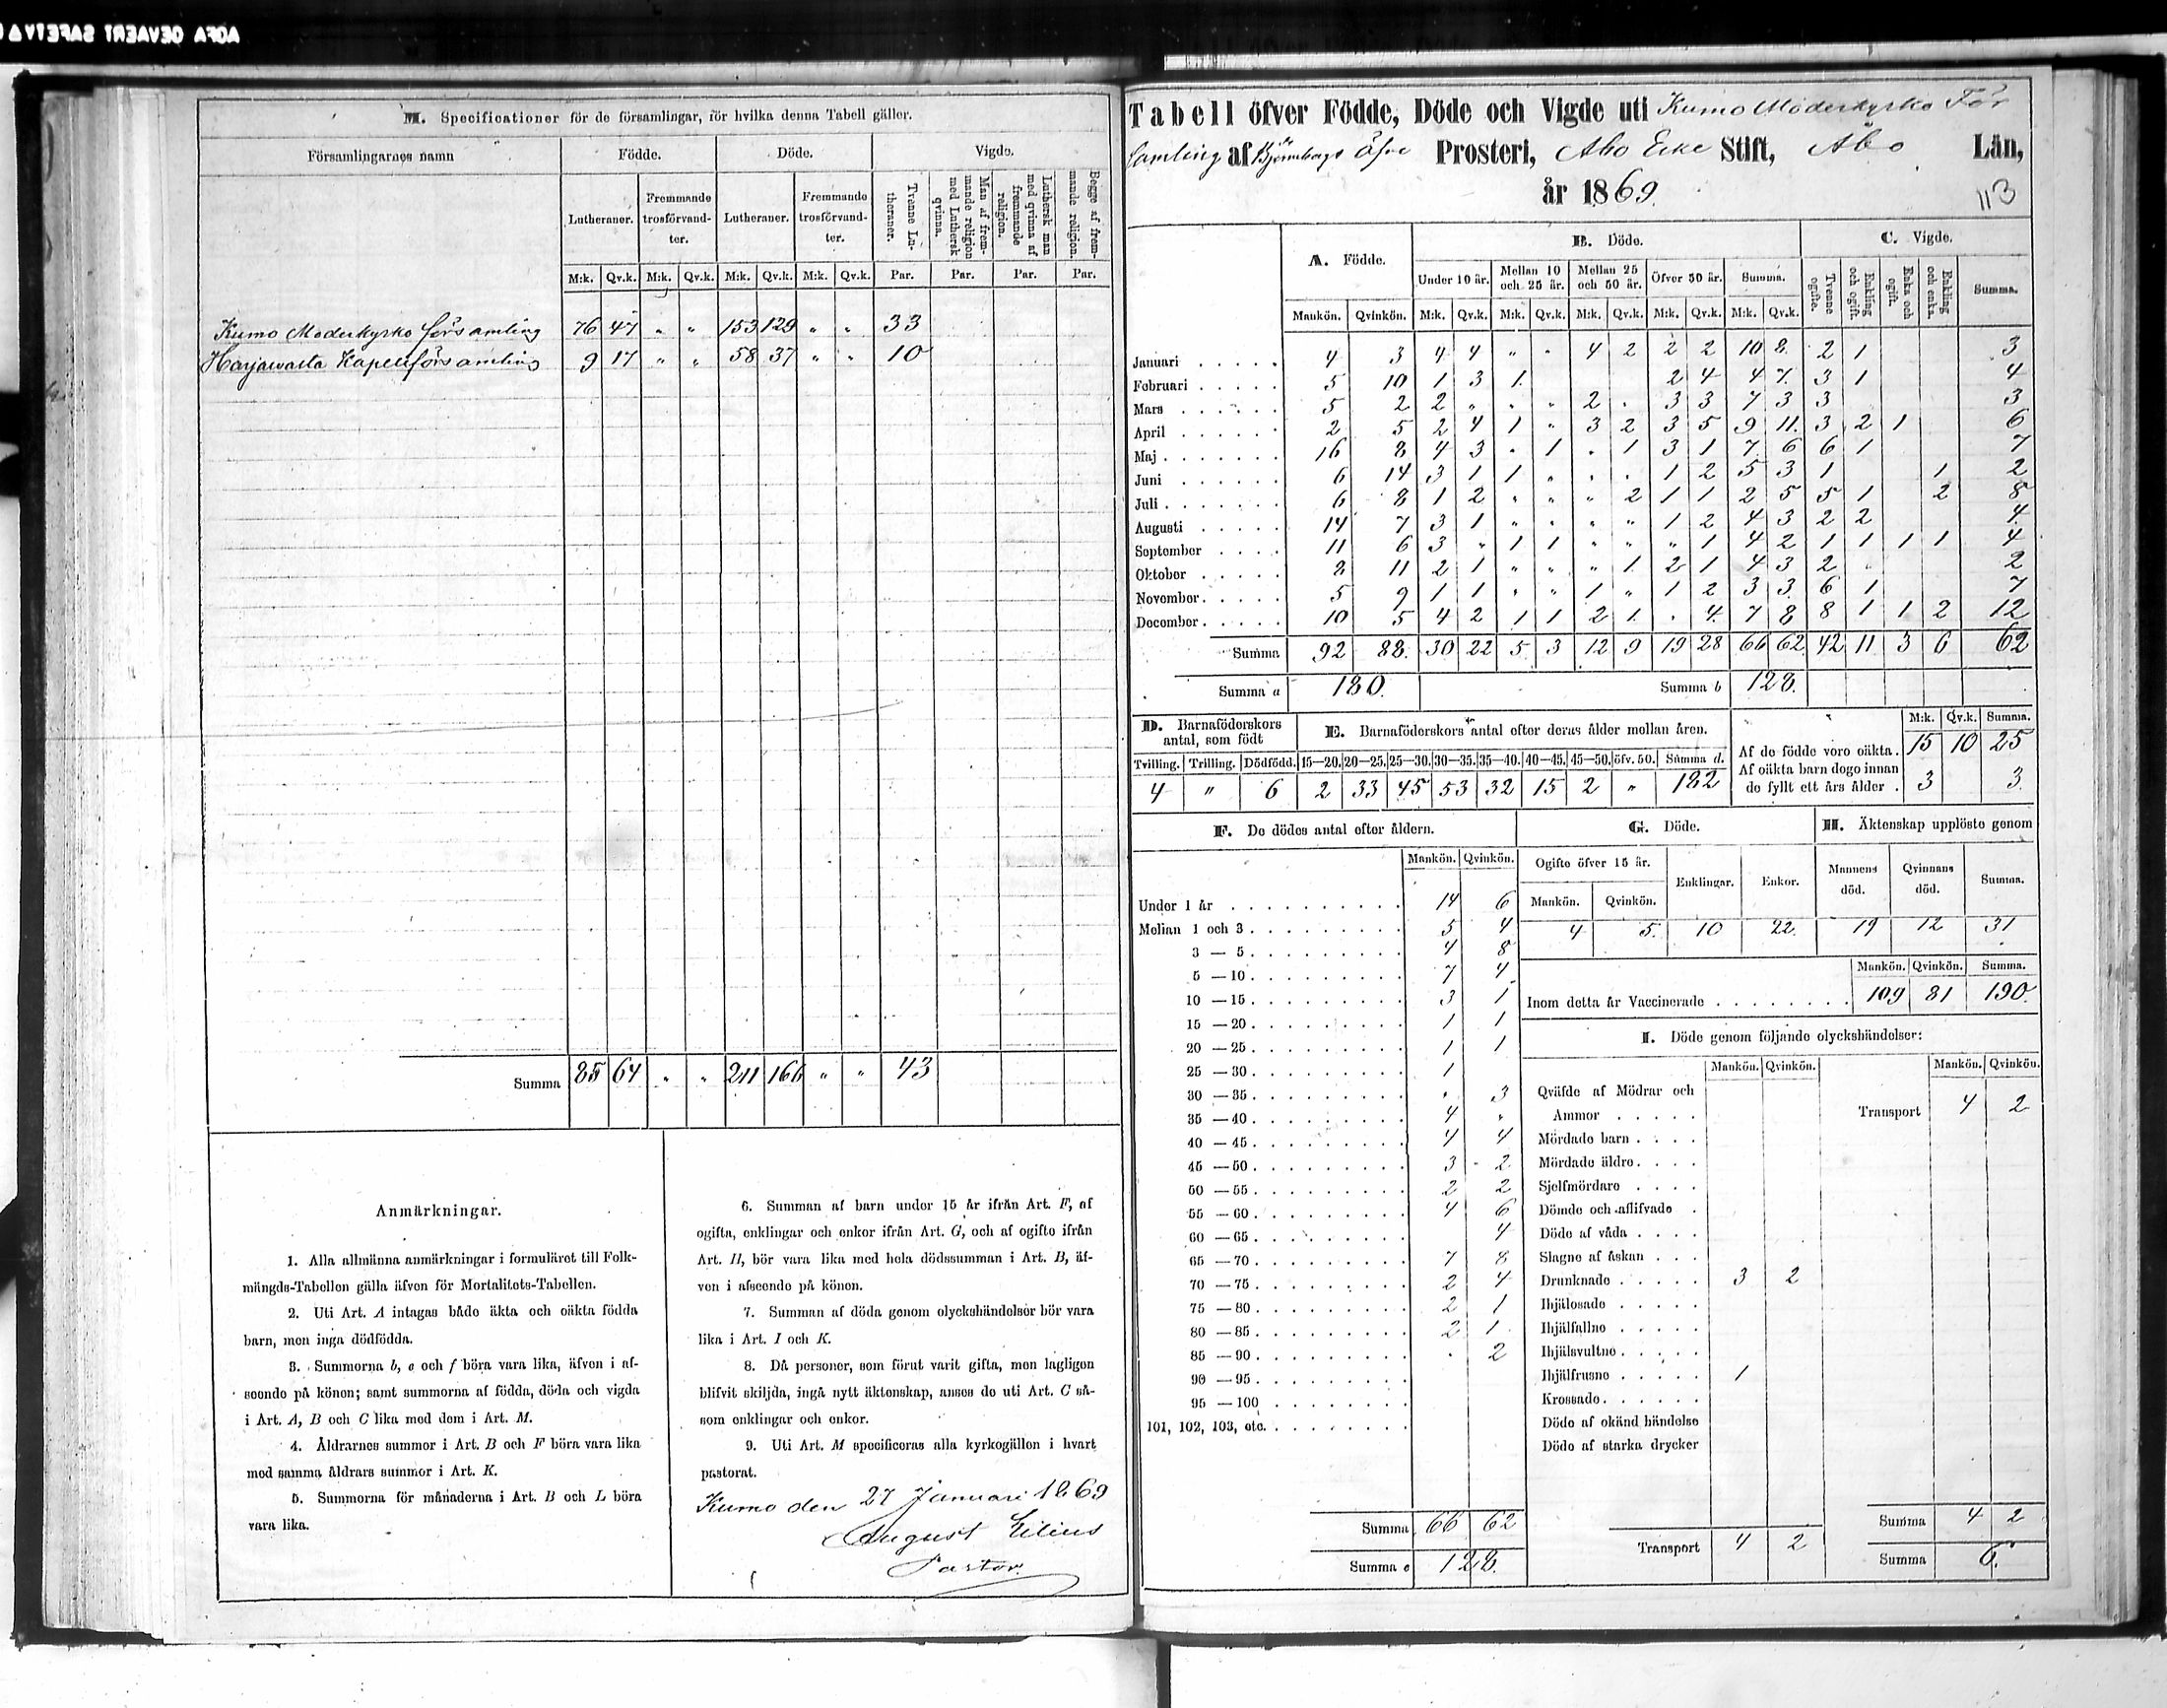 M. Specificationer för de församlingar, för hvilka denna Tabell gäller.
Församlingarnes namn Födde. Döde. Vigde.
Lutheraner. Fremmande trosförvandter. Lutheraner. Fremmande trosförvandter. Tvenne Lutheraner. Man af fremmande religion med Luthersk qvinna. Luthersk man med qvinna af fremmande religion. Begge af fremmande religion.
M:k. Qv.k. M:k. Qv.k. M:k. Qv.k. M:k. Qv.k. Par. Par. Par. Par.
Kumo Moderkyrko församling 76 47 „ „ 153 129 „ „ 33
Harjawalta Kapellförsamling 9 17 „ „ 58 37 „ „ 10
Summa 85 64 „ „ 211 166 „ „ 43
Anmärkningar.
1. Alla allmänna anmärkningar i formuläret till Folk-
mängds-Tabellen gälla äfven för Mortalitets-Tabellen.
2. Uti Art. A intagas både äkta och oäkta födda
barn, men inga dödfödda.
3. Summorna b, e och f böra vara lika, äfven i af-
seende på könen; samt summorna af födda, döda och vigda
i Art. A, B och C lika med dem i Art. M.
4. Åldrarnes summor i Art. B och F böra vara lika
med samma åldrars summor i Art. K.
5. Summorna för månaderna i Art. B och L böra
vara lika.
6. Summan af barn under 15 år ifrån Art. F, af
ogifta, enklingar och enkor ifrån Art. G, och af ogifte ifrån
Art. H, bör vara lika med hela dödssumman i Art. B, äf-
ven i afseende på könen.
7. Summan af döda genom olyckshändelser bör vara
lika i Art. I och K.
8. Då personer, som förut varit gifta, men lagligen
blifvit skiljda, ingå nytt äktenskap, anses de uti Art. C så-
som enklingar och enkor.
9. Uti Art. M specificeras alla kyrkogällen i hvart
pastorat.
Kumo den 27 Januari 1869
August
Pastor.
Tabell öfver Födde, Döde och Vigde uti Kumo Moderkyrko För
samling af Björneborgs öfre Prosteri, Åbo Erke Stift, Åbo Län,
år 1869.
113
A. Födde. B. Döde. C. Vigde.
Under 10 år. Mellan 10 och 25 år. Mellan 25 och 50 år. Öfver 50 år. Summa. Tvenne ogifte. Enkling och ogift. Enka och ogift. Enkling och enka. Summa.
Mankön. Qvinkön. M:k. Qv.k. M:k. Qv.k. M:k. Qv.k. M:k. Qv.k. M:k. Qv.k.
Januari 4 3 4 4 „ „ 4 2 2 2 10 8. 2 1 3
Februari 5 10 1 3 1. 2 4 4 7. 3 1 4
Mars 5 2 2 „ „ „ 2 „ 3 3 7 3 3 3
April 2 5 2 4 1 „ 3 2 3 5 9 11. 3 2 1 6
Maj 16 8 4 3 „ 1 „ 1 3 1 7. 6 6 1 7
Juni 6 14 3 1 1 „ „ „ 1 2 5 3 1 1 2
Juli 6 8 1 2 „ „ „ 2 1 1 2 5 5 1 2 8
Augusti 14 7 3 1 „ „ „ „ 1 2 4 3 2 2 4.
September 11 6 3 „ 1 1 „ „ „ 1 4 2 1 1 1 1 4
Oktober 8 11 2 1 „ „ „ 1. 2 1 4 3 2 2
November 5 9 1 1 „ „ 1 „ 1 2 3 3 6 1 7
December 10 5 4 2 1 1 2 1. „ 4. 7 8 8 1 1 2 12
Summa 92 88. 30 22 5 3 12 9 19 28 66 62 42 11 3 6 62
Summa a 180. Summa b 128.
D. Barnaföderskors antal, som födt E. Barnaföderskors antal efter deras ålder mellan åren.
M:k. Qv.k. Summa.
Tvilling. Trilling. Dödfödd. 15—20. 20—25. 25—30. 30—35. 35—40. 40—45. 45—50. öfv. 50. Summa d.
4 „ 6 2 33 45 53 32 15 2 „ 182
Af de födde voro oäkta. 15 10 25
Af oäkta barn dogo innan
de fyllt ett års ålder. 3 3.
F. De dödes antal efter åldern.
Mankön. Qvinkön.
Under 1 år 14 6
Mellan 1 och 3 5 4
3 — 5 4 8
5 — 10 7 4
10 — 15 3 1
15 — 20 1 1
20 — 25 1 1
25 — 30 1
30 — 35 „ 3
35 — 40 4 „
40 — 45 4 4
45 — 50 3 2
50 — 55 2 2
55 — 60 4 6
60 — 65 4
65 — 70 7 8
70 — 75 2 4
75 — 80 2 1
80 — 85 2 1
85 — 90 „ 2
90 — 95
95 — 100
101, 102, 103, etc.
Summa 66 62
Summa e 128.
G. Döde.
Ogifte öfver 15 år. Enklingar. Enkor.
Mankön. Qvinkön.
4 5. 10 22.
H. Äktenskap upplöste genom
Mannens död. Qvinnans död. Summa.
19 12 31
Mankön. Qvinkön. Summa.
Inom detta år Vaccinerade 109 81 190.
I. Döde genom följande olyckshändelser:
Mankön. Qvinkön. Mankön. Qvinkön.
Qväfde af Mödrar och
Ammor
Mördade barn
Mördade äldre
Sjelfmördare
Dömde och aflifvade
Döde af våda
Slagne af åskan
Drunknade 3 2
Ihjälosade
Ihjälfallne
Ihjälsvultne
Ihjälfrusne 1
Krossade
Döde af okänd händelse
Döde af starka drycker
Transport 4 2
Transport 4 2
Summa 4 2
Summa 6.